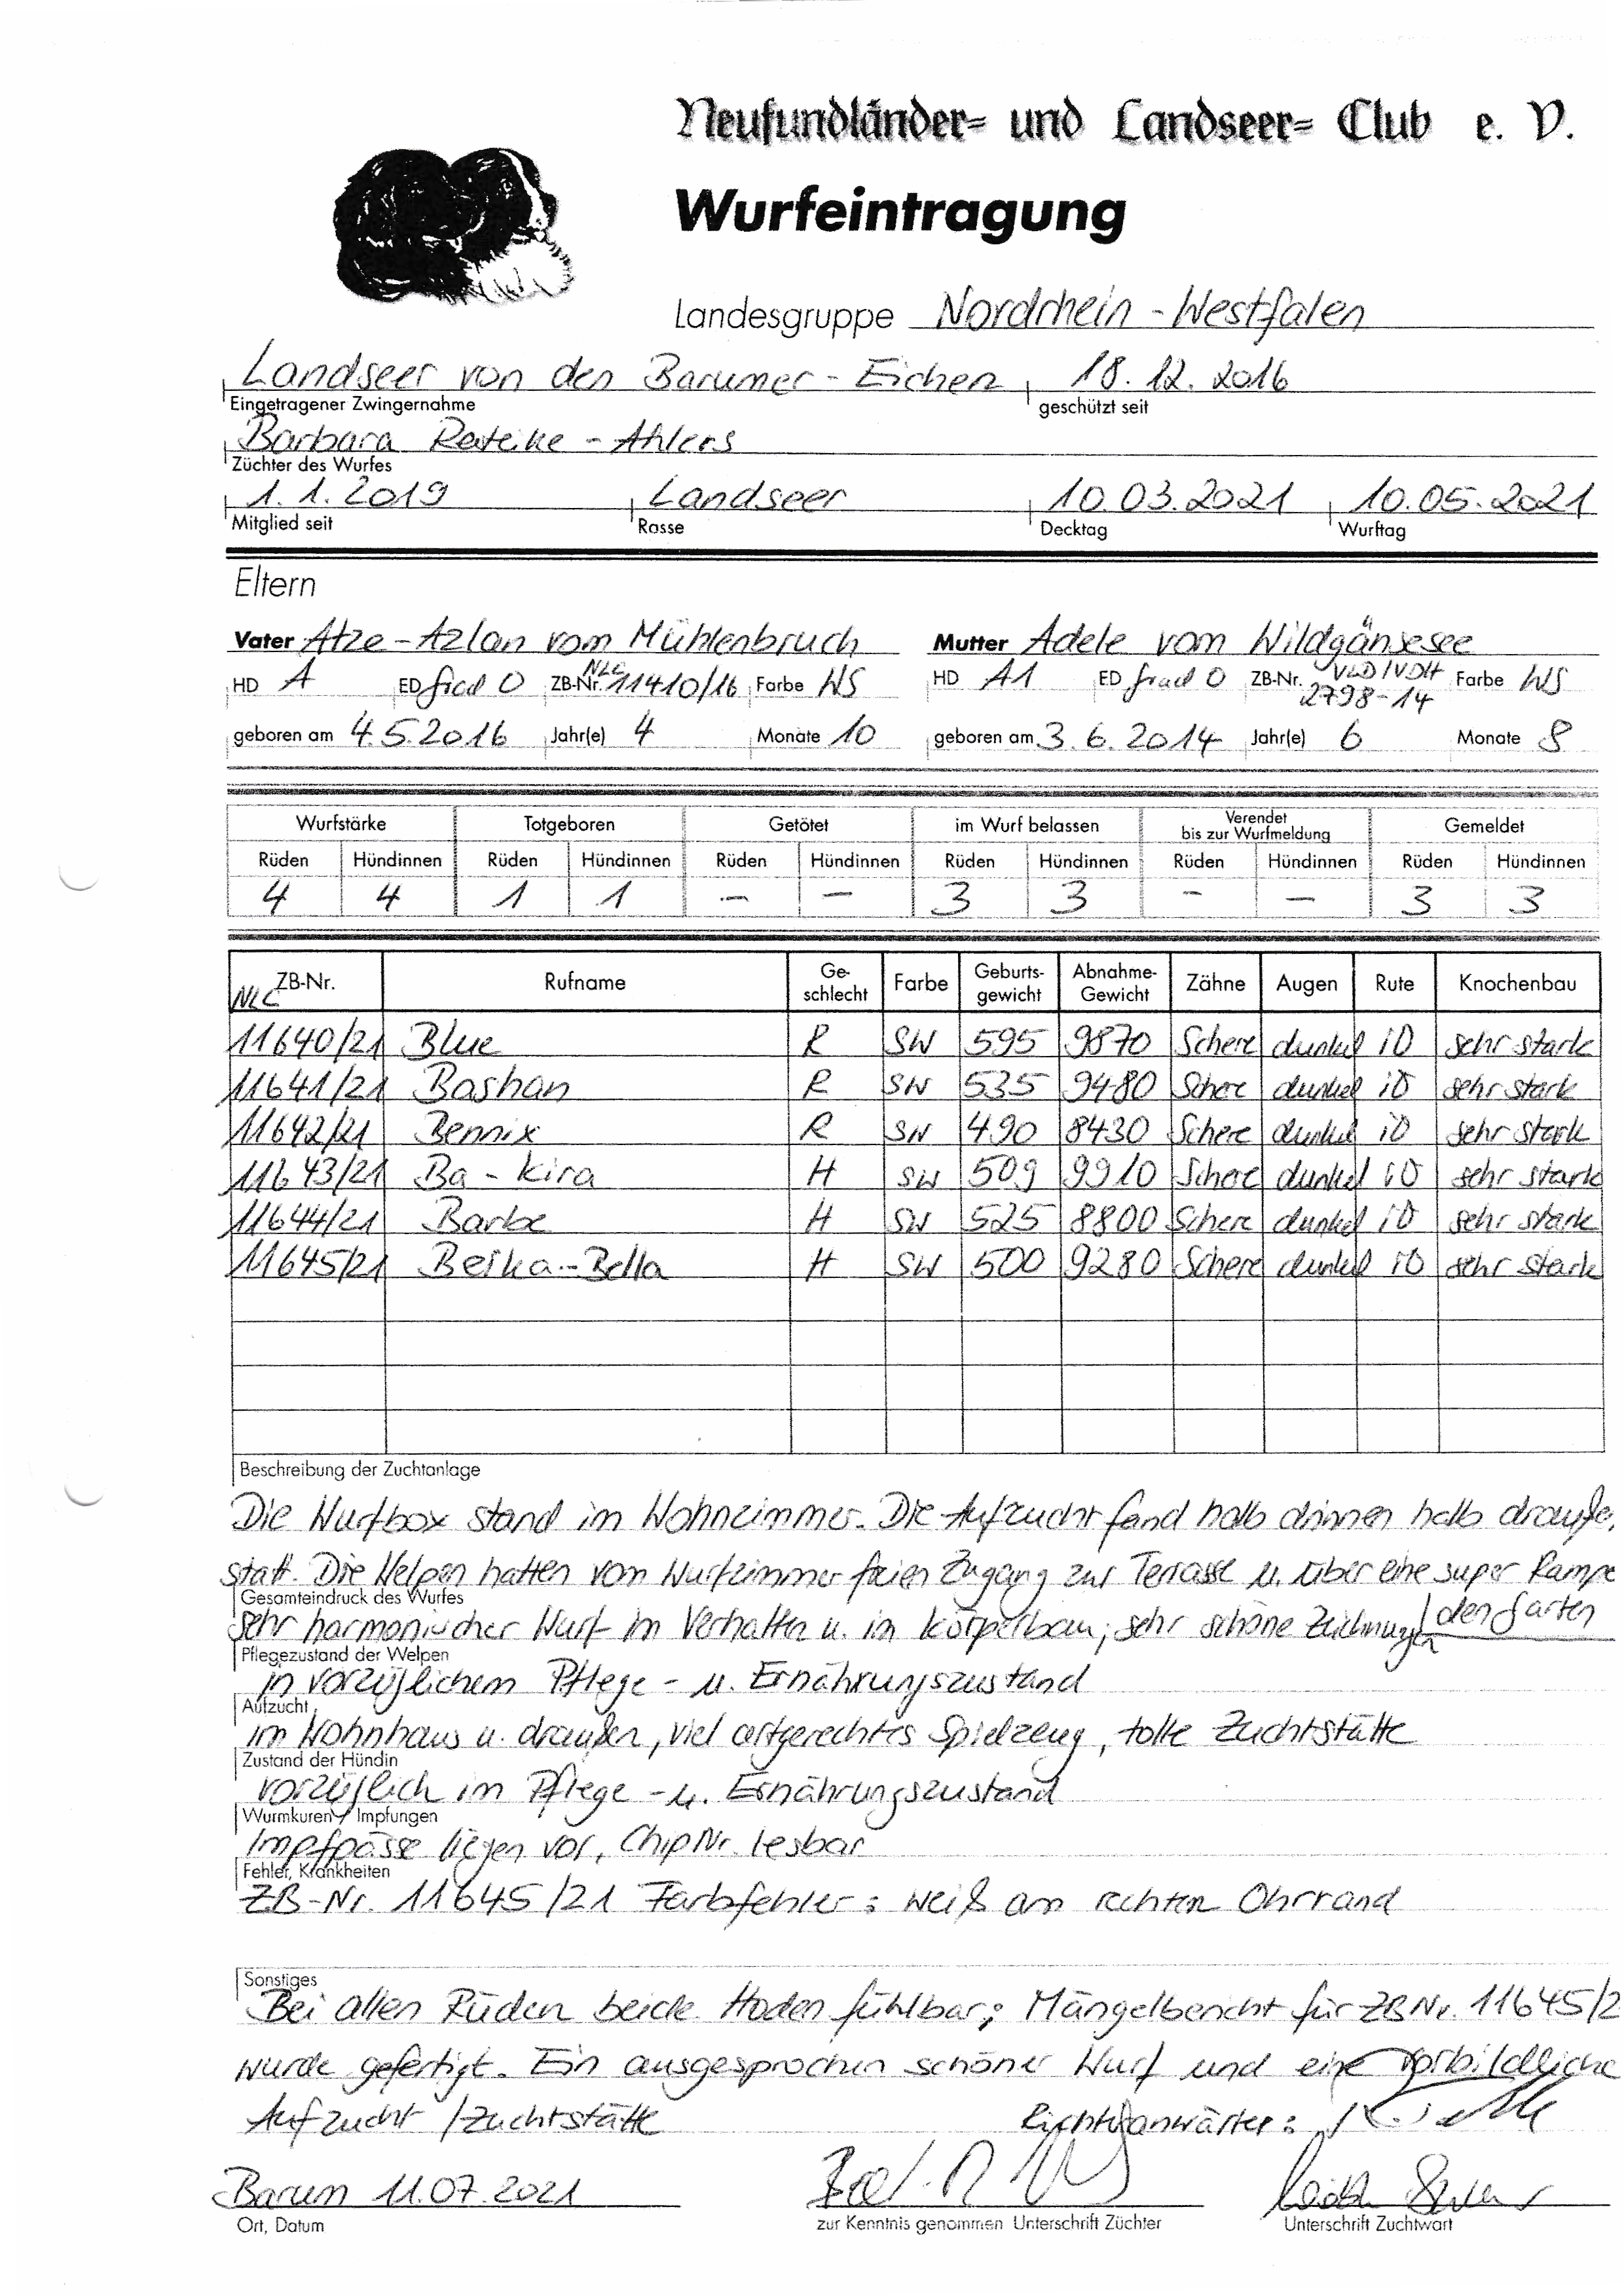 Neufundländer= und Landseer= Club e. V.
Wurfeintragung
Landesgruppe Nordrhein - Westfalen
Landseer von den Barumer - Eichen 18. 12. 2016
Eingetragener Zwingernahme geschützt seit
Barbara Rateike - Ahlers
Züchter des Wurfes
1. 1. 2019 Landseer 10.03.2021 10.05.2021
Mitglied seit Rasse Decktag Wurftag
Eltern
Vater Atze - Azlan vom Mühlenbruch Mutter Adele vom Wildgänsesee
HD A ED Grad 0 ZB-Nr. NLC 11410/16 Farbe WS HD A1 ED Grad 0 ZB-Nr. VLD/VDH 2798-14 Farbe WS
geboren am 4.5.2016 Jahr(e) 4 Monate 10 geboren am 3.6.2014 Jahr(e) 6 Monate 8
Wurfstärke Totgeboren Getötet im Wurf belassen Verendet bis zur Wurfmeldung Gemeldet
Rüden Hündinnen Rüden Hündinnen Rüden Hündinnen Rüden Hündinnen Rüden Hündinnen Rüden Hündinnen
4 4 1 1 - - 3 3 - - 3 3
NLC ZB-Nr. Rufname Ge-schlecht Farbe Geburts-gewicht Abnahme-Gewicht Zähne Augen Rute Knochenbau
11640/21 Blue R SW 595 9870 Schere dunkel iO sehr stark
11641/21 Bashan R SW 535 9480 Schere dunkel iO sehr stark
11642/21 Bennix R SW 490 8430 Schere dunkel iO sehr stark
11643/21 Ba - Kira H SW 509 9910 Schere dunkel iO sehr stark
11644/21 Barbe H SW 525 8800 Schere dunkel iO sehr stark
11645/21 Beika-Bella H SW 500 9280 Schere dunkel iO sehr stark
Beschreibung der Zuchtanlage
Die Wurfbox stand im Wohnzimmer. Die Aufzucht fand halb drinnen halb draußen
statt. Die Welpen hatten vom Wurfzimmer freien Zugang zur Terrasse u. über eine super Rampe
Gesamteindruck des Wurfes
sehr harmonischer Wurf im Verhalten u. im Körperbau; sehr schöne Zeichnungen / den Garten
Pflegezustand der Welpen
in vorzüglichem Pflege - u. Ernährungszustand
Aufzucht
im Wohnhaus u. draußen, viel artgerechtes Spielzeug, tolle Zuchtstätte
Zustand der Hündin
vorzüglich im Pflege - u. Ernährungszustand
Wurmkuren / Impfungen
Impfpässe liegen vor, ChipNr. lesbar
Fehler, Krankheiten
ZB-Nr. 11645/21 Farbfehler: weiß am rechten Ohrrand
Sonstiges
Bei allen Rüden beide Hoden fühlbar; Mängelbericht für ZBNr. 11645/2
wurde gefertigt. Ein ausgesprochen schöner Wurf und eine vorbildliche
Aufzucht / Zuchtstätte Richteranwärter:
Barum 11.07.2021
Ort, Datum zur Kenntnis genommen Unterschrift Züchter Unterschrift Zuchtwart